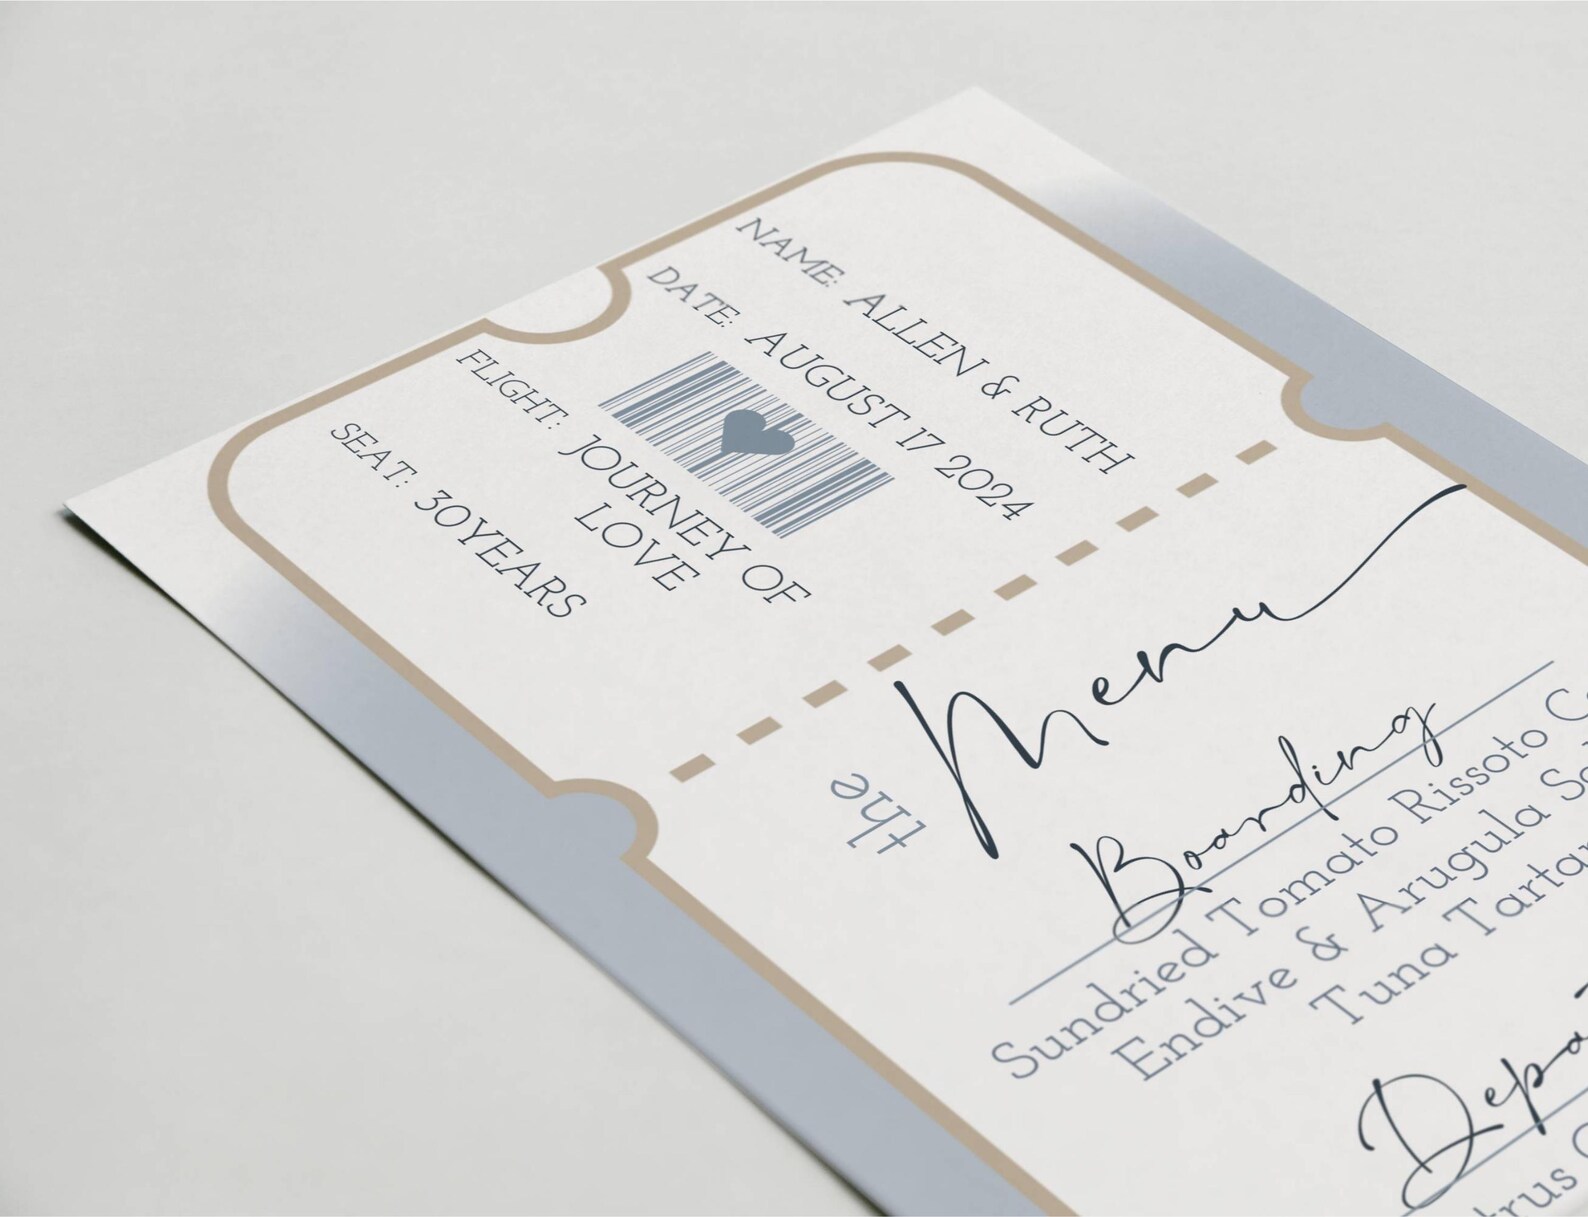 NAME: ALLEN & RUTH
DATE: AUGUST 17 2024
FLIGHT: JOURNEY OF
LOVE
SEAT: 30YEARS
the Menu
Boarding
Sundried Tomato Rissoto
Endive & Arugula
Tuna